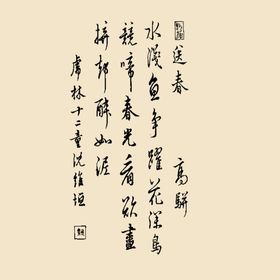 送春
高駢
水淺魚爭躍花深鳥
競啼春光看欲盡
拚却醉如泥
虎林十二童沈維垣